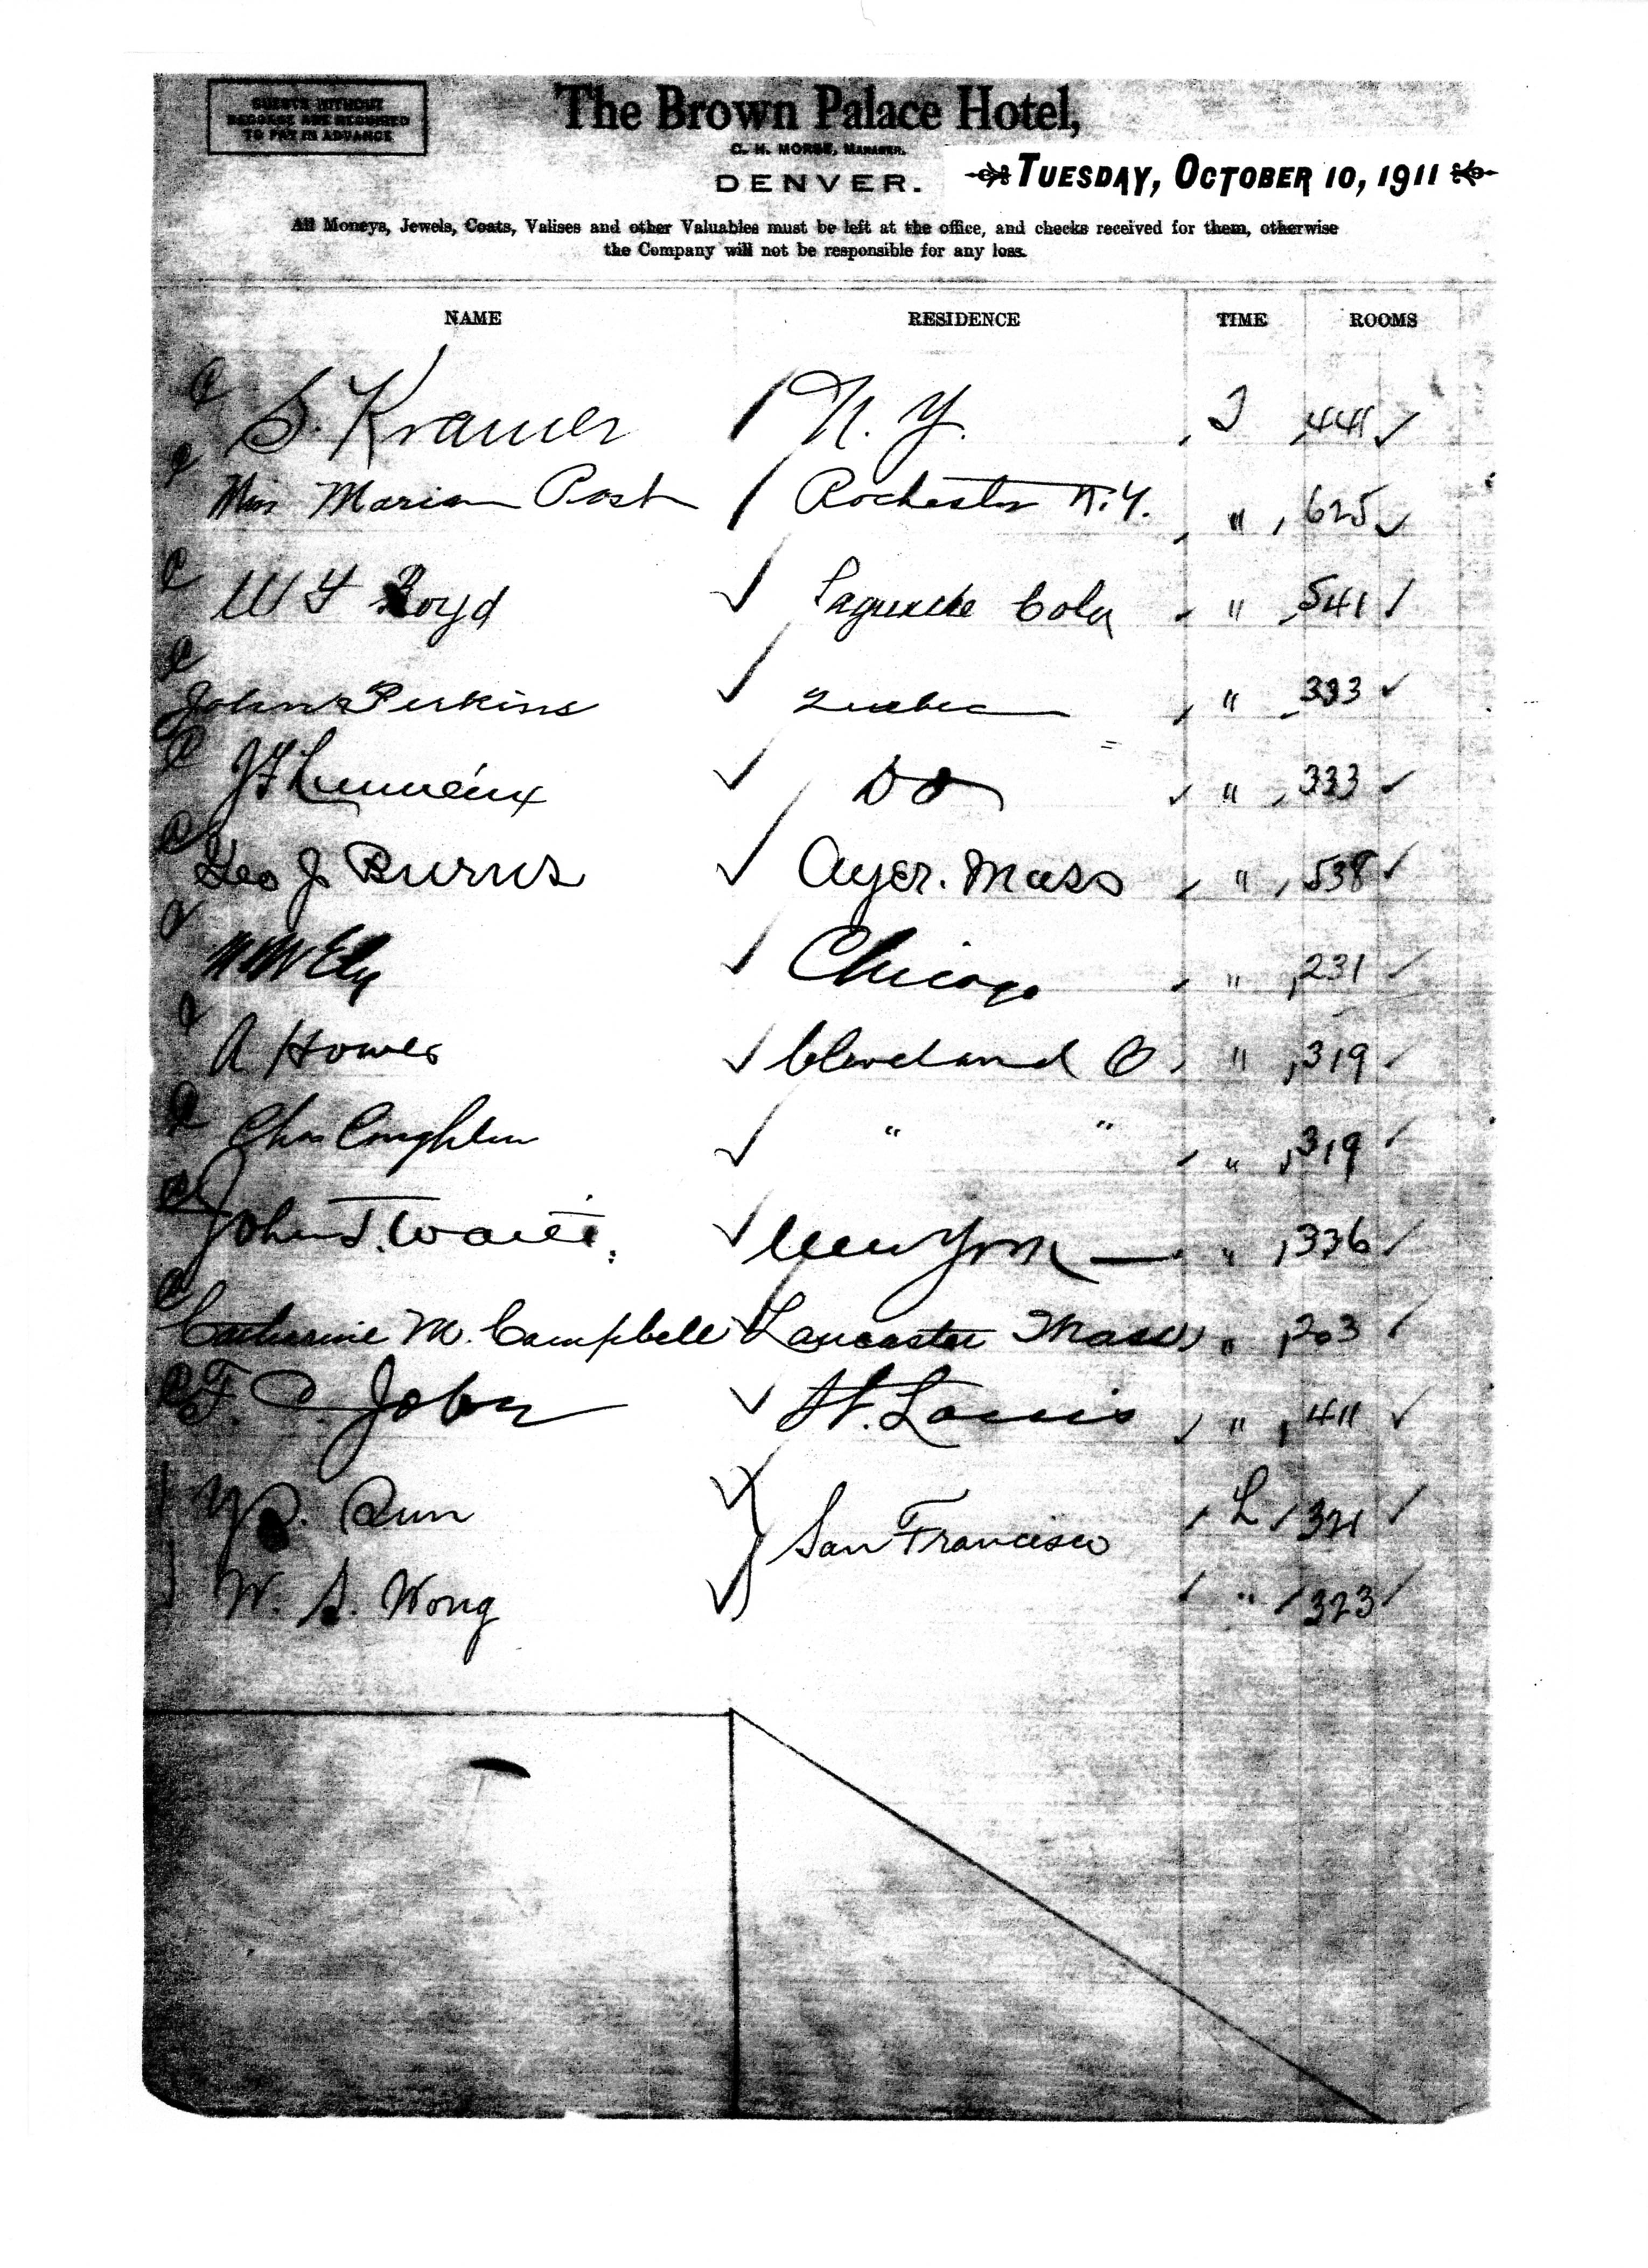 GUESTS WITHOUT
BAGGAGE ARE REQUIRED
TO PAY IN ADVANCE
The Brown Palace Hotel,
C. H. MORSE, MANAGER.
DENVER.
TUESDAY, OCTOBER 10, 1911
All Moneys, Jewels, Coats, Valises and other Valuables must be left at the office, and checks received for them, otherwise
the Company will not be responsible for any loss.
NAME RESIDENCE TIME ROOMS
S. Kramer N. Y. 441
Miss Marian Post Rochester N.Y. " 625
W F Boyd Saguache Colo " 541
Perkins Quebec " 333
J F Do " 333
Geo J Burns Ayer. Mass " 538
Ely Chicago " 231
A Howes Cleveland O " 319
Chas Coughlin " " " 319
John T. Waite. New York " 336
Catharine M. Campbell Lancaster Mass " 203
F. C. St. Louis " 411
San Francisco L 321
W. S. Wong " 323